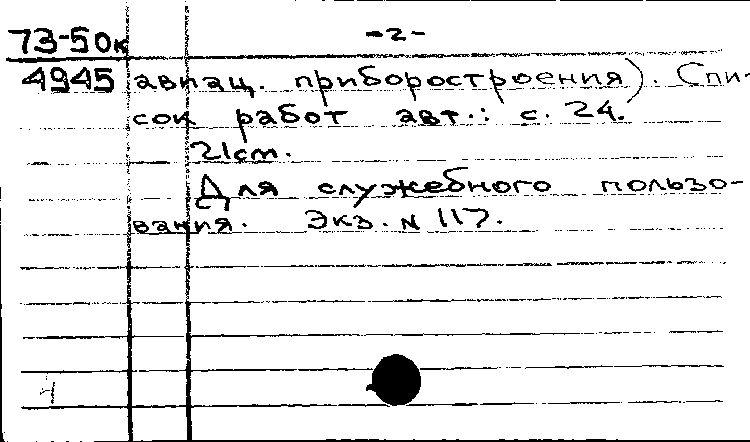 73-50к -2-
4945 авиац. приборостроения). Спи-
сок работ авт.: с. 24.
21см.
Для служебного пользо-
вания. Экз. N 117.
4